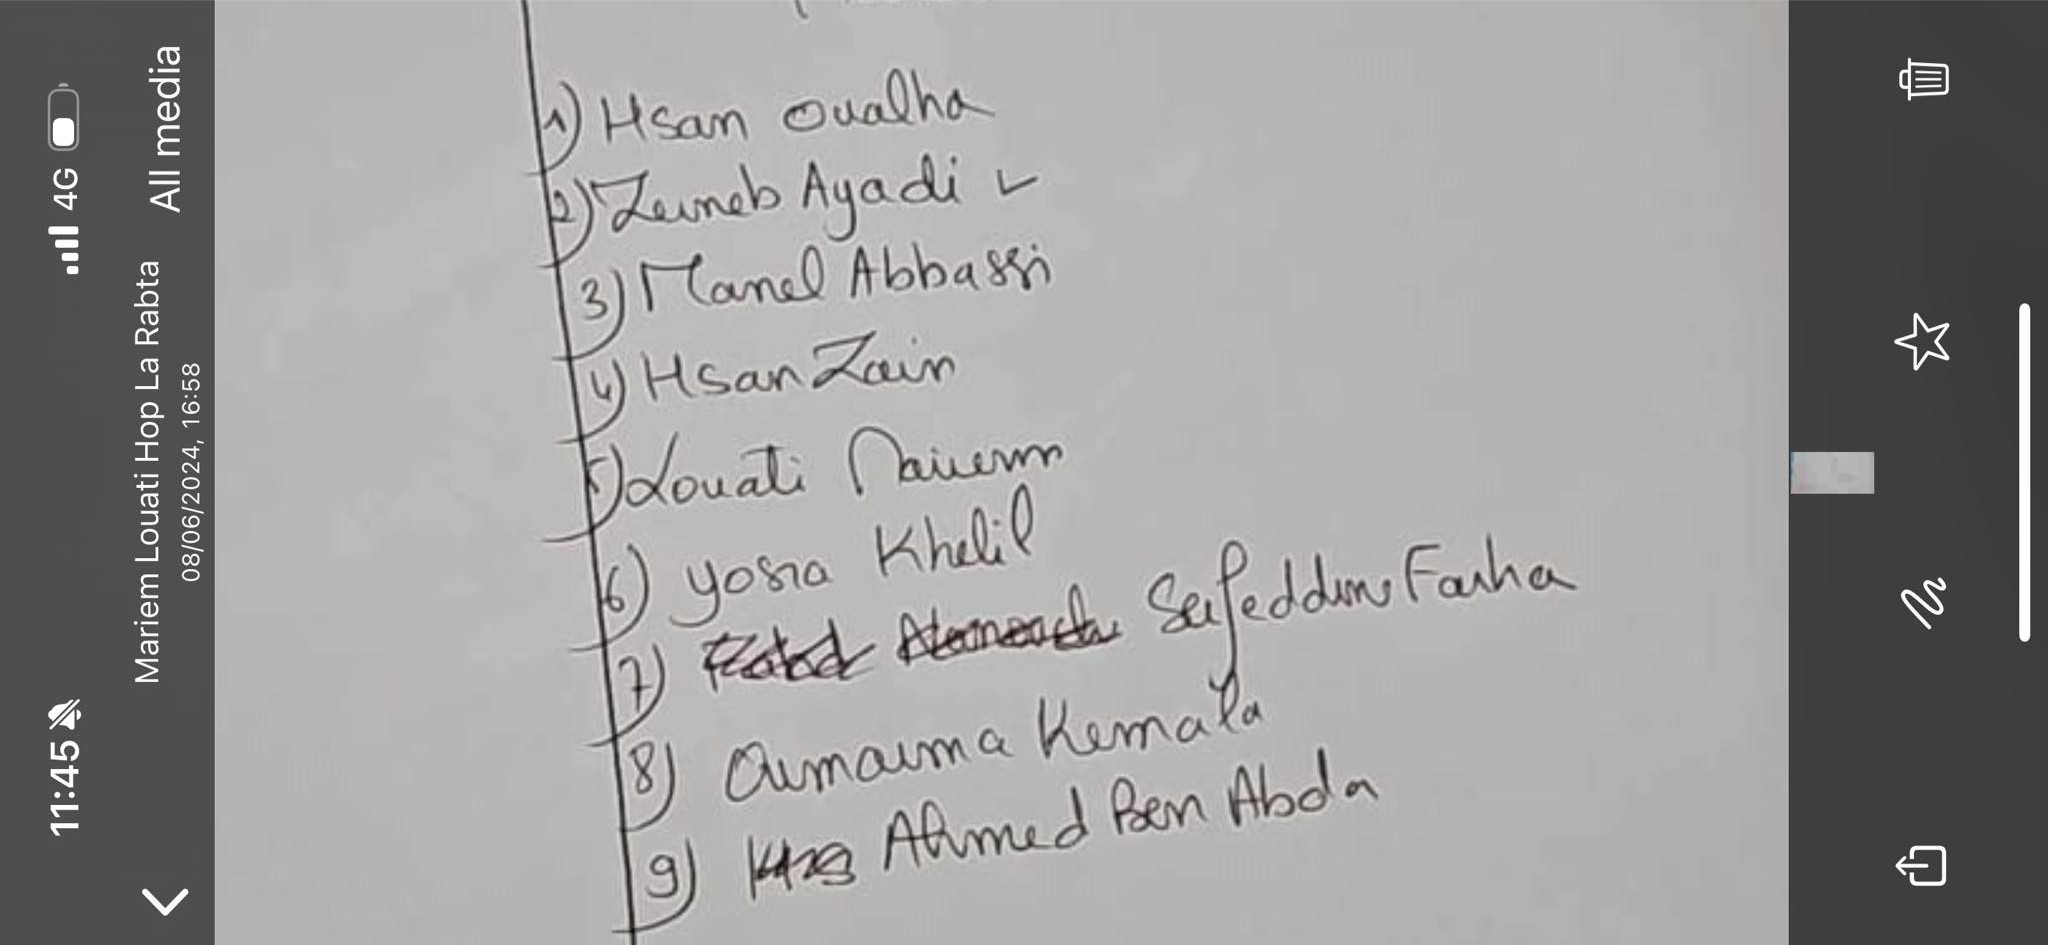 11:45
4G
Mariem Louati Hop La Rabta
08/06/2024, 16:58
All media
1) Hsan Oualha
2) Zeineb Ayadi ✓
3) Manel Abbassi
4) Hsan Zain
5) Louati Mariem
6) Yosra Khelil
7) Seifeddine Farha
8) Oumaima Kemala
9) Ahmed Ben Abda